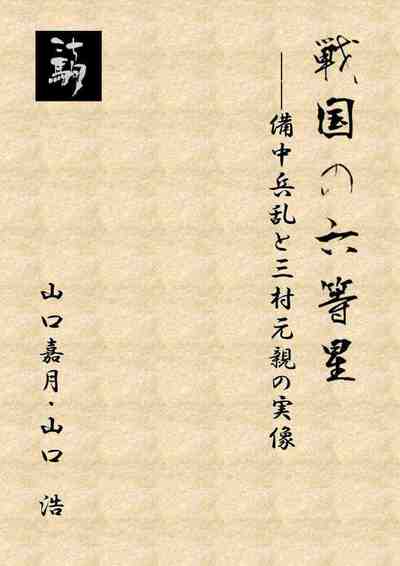 戦国の六等星
——備中兵乱と三村元親の実像
山口嘉月・山口 浩